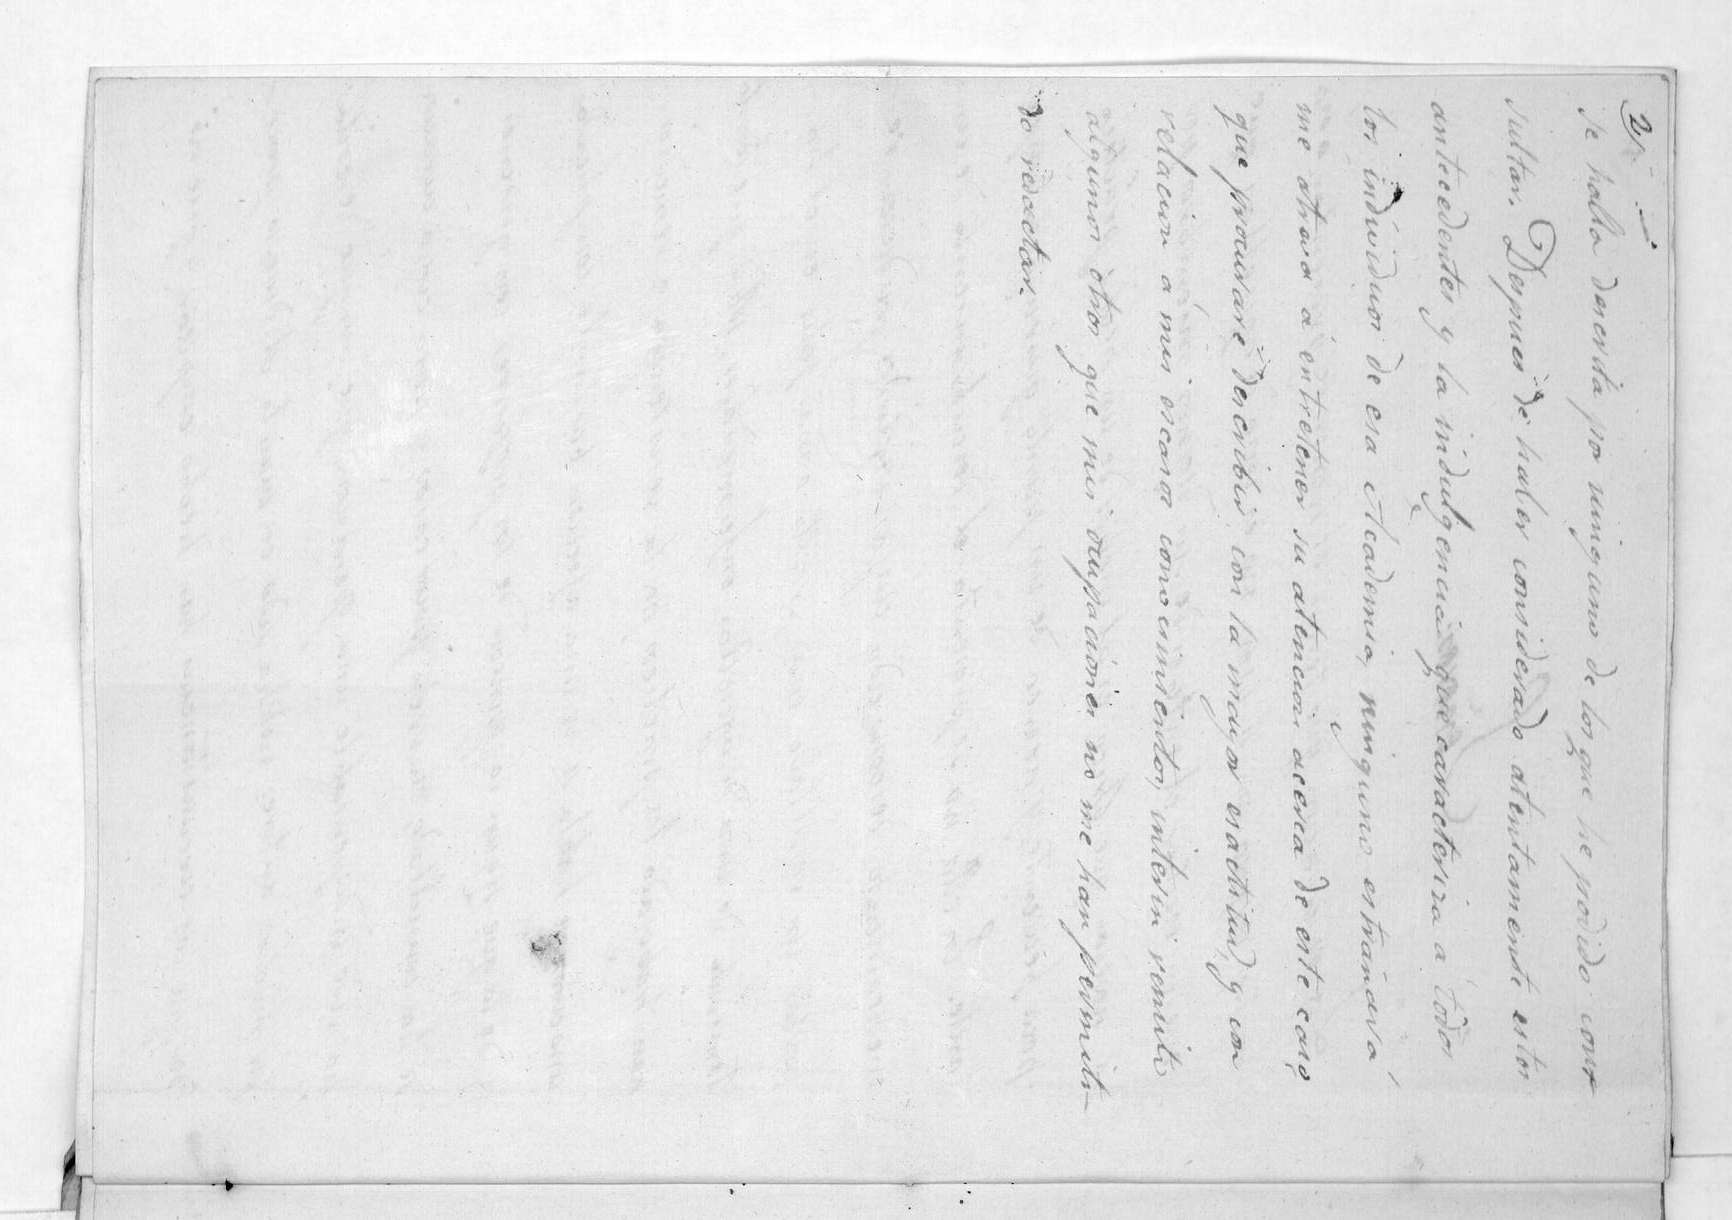 2
se halla descrita por ninguno de los que he podido con-
sultar. Despues de haber considerado atentamente estos
antecedentes y la indulgencia que caracteriza a todos
los individuos de esa Academia, ninguno estrañará
me atreva á entretener su atencion acerca de este caso,
que procuraré describir con la mayor esactitud, y con
relacion a mis escasos conocimientos, interin remito
algunos otros que mis ocupaciones no me han permiti-
do redactar.